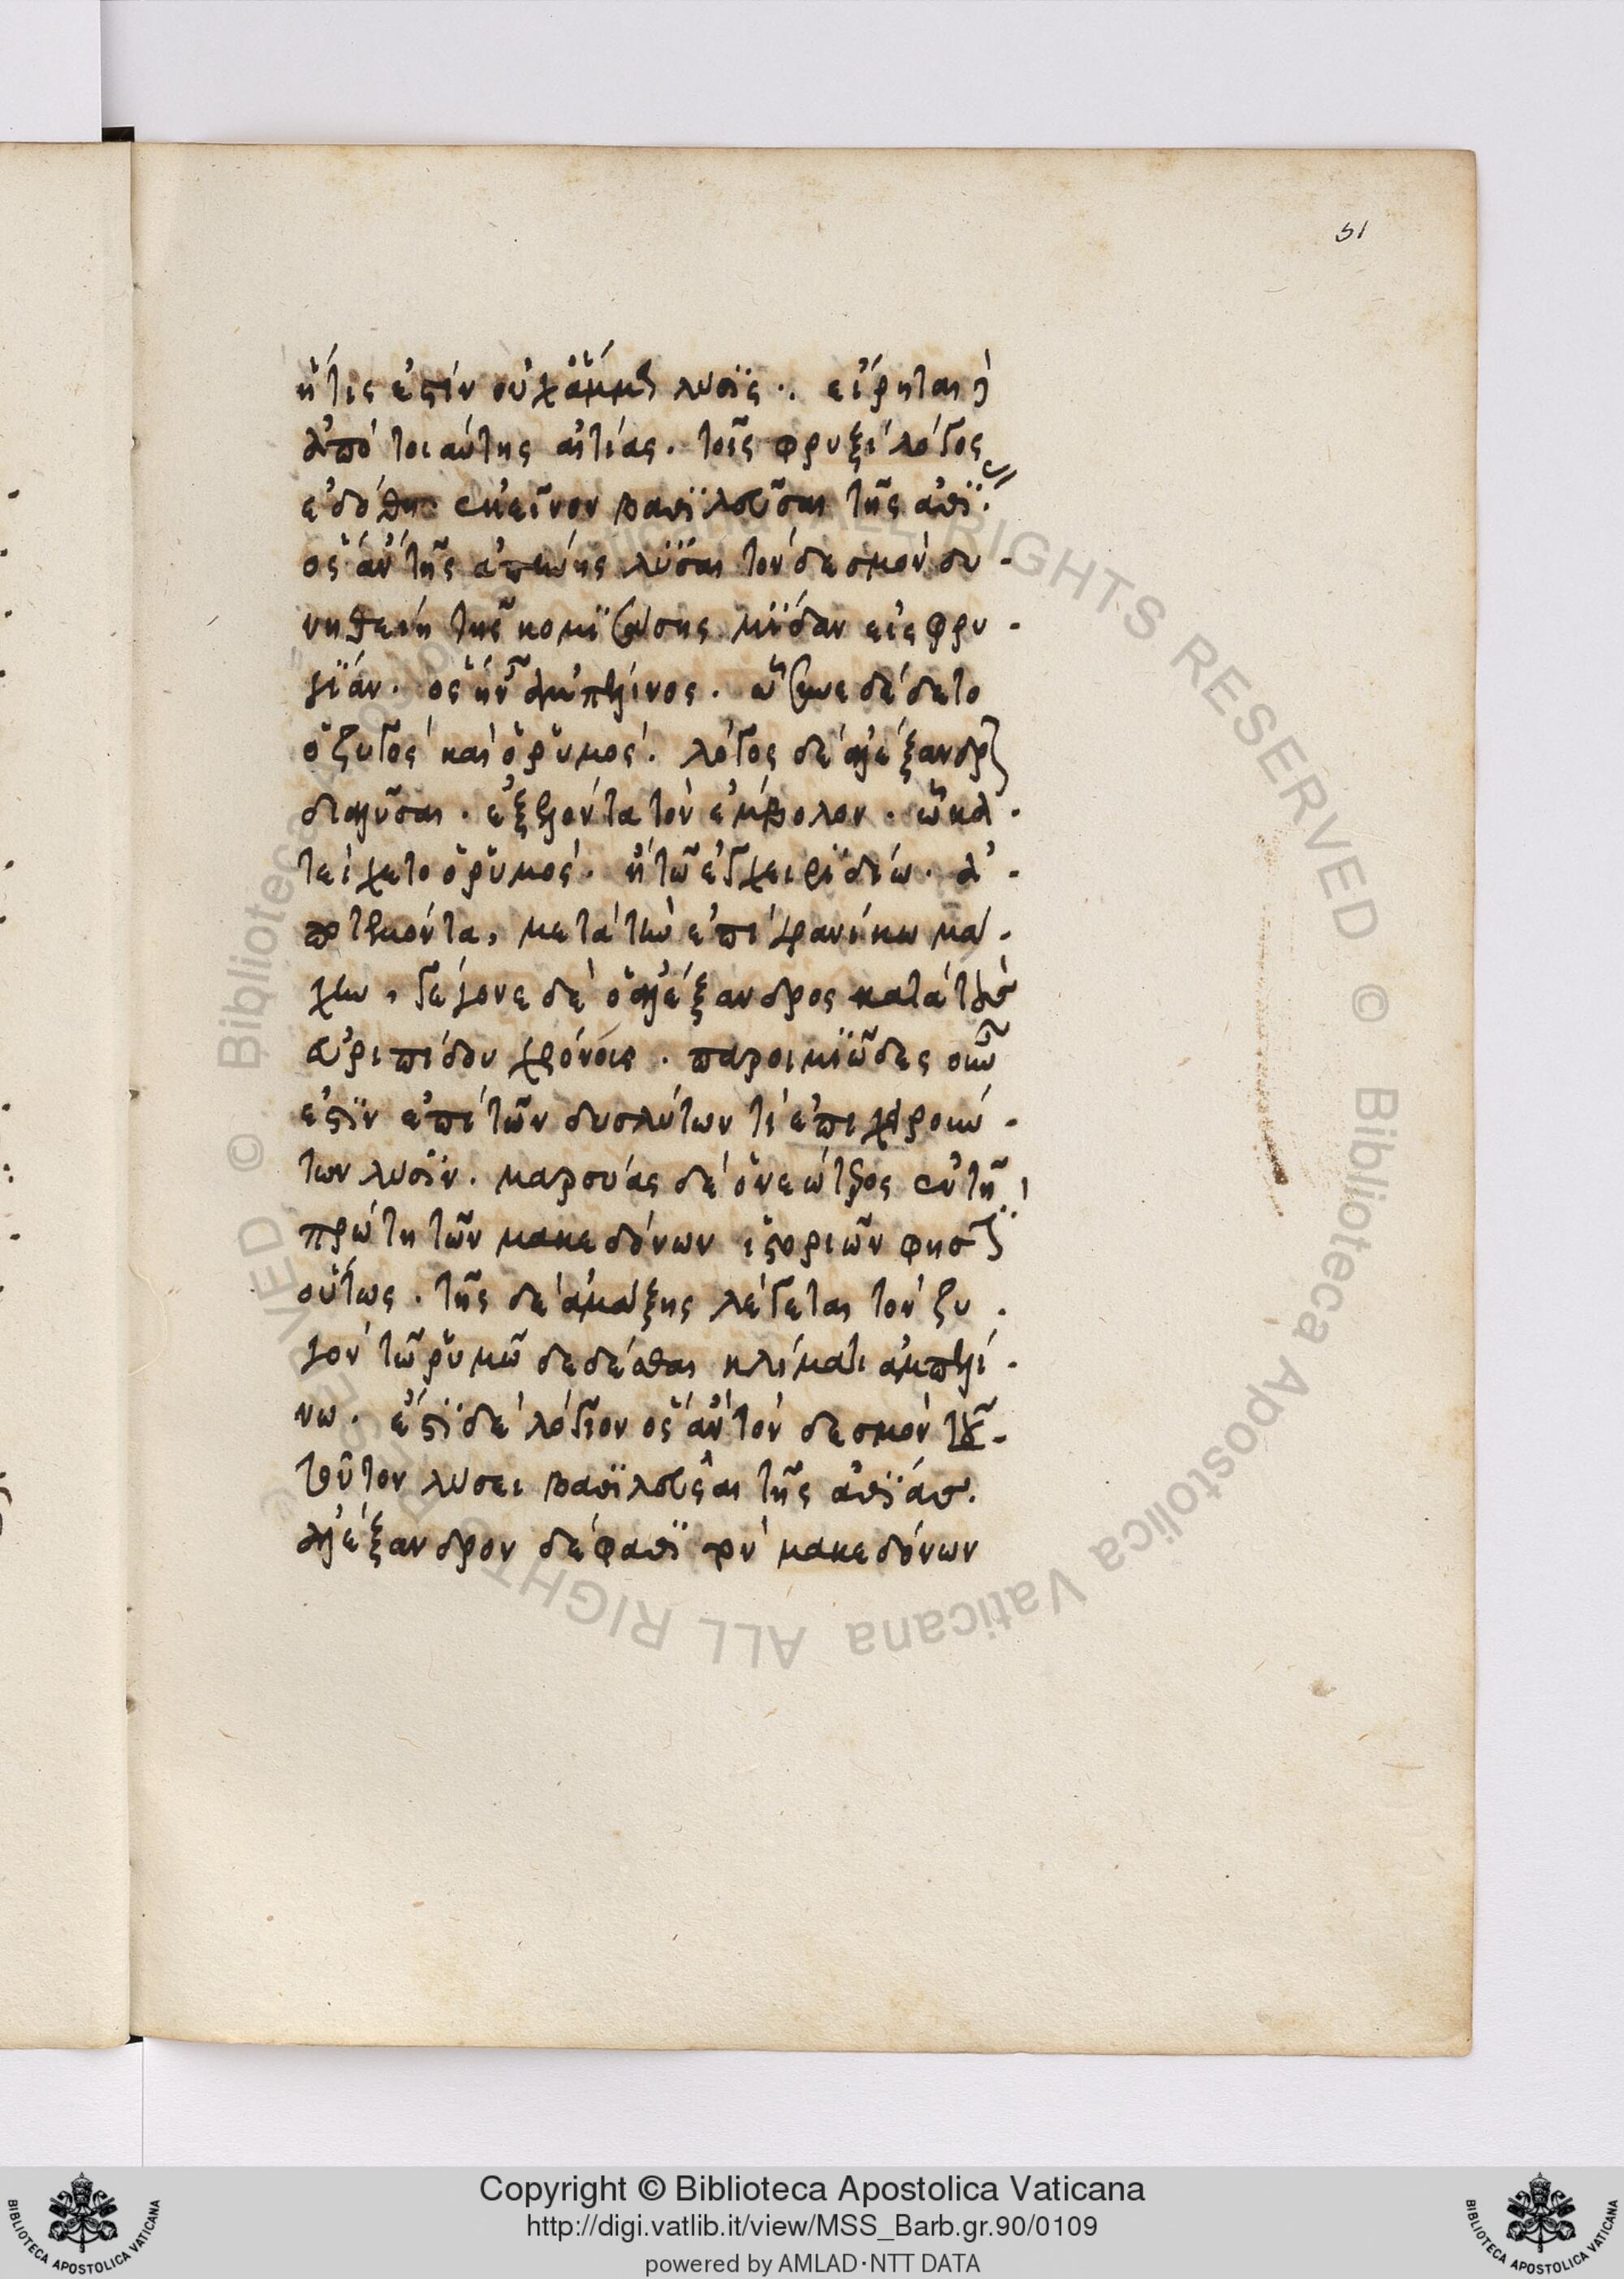 51
ἥτις ἐστίν οὐχ ἅμμα λυσϊς. εἴρηται δὲ
ἀπὸ τοιαύτης αἰτίας. τοῖς φρυξὶ λόγος
ἐδόθη ἐκεῖνον βασϊλεῦσαι τῆς ἀσϊ
ὃς ἂν τῆς ἀπήνης λῦσαι τὸν δεσμὸν δυ-
νηθείη τῆς κομϊζούσης μΐδαν εἰς φρυ-
γΐαν. ὃς ἦν ἀμπέλινος. ὧ ἐδέδετο
ὁ ζυγὸς καὶ ὁ ῥυμός. λόγος δὲ ἀλέξανδρον
διαλῦσαι. ἐξελόντα τὸν ἔμβολον. ὧ κα-
τείχετο ὁ ῥυμός. ἢ τῶ ἐγχειρϊδίω. ἀ-
ποτεμόντα, μετὰ τὴν ἐπὶ γρανίκω μά-
χην, γέγονε δὲ ὁ ἀλέξανδρος κατὰ τοὺς
εὐριπίδου χρόνοις. παροιμϊῶδες οὖν
ἐστϊν ἐπὶ τῶν δυσλύτων τὶ ἐπιχειρούν-
των λυσϊν. μαρσύας δὲ ὁ νεώτερος ἐν τῆ
πρώτη τῶν μακεδόνων ἱστοριῶν φησϊ
οὕτως. τῆς δὲ ἁμάξης λέγεται τὸν ζυ-
γὸν τῶ ῥυμῶ δεδέσθαι κλήματι ἀμπελί-
νω. ἔστϊ δὲ λόγιον ὃς ἂν τὸν δεσμὸν τοῦ-
τοῦτον λύσει βασϊλεῦσαι τῆς ἀσϊάσ.
ἀλέξανδρον δέ φασϊ τὸν μακεδόνων
Copyright © Biblioteca Apostolica Vaticana
http://digi.vatlib.it/view/MSS_Barb.gr.90/0109
powered by AMLAD·NTT DATA
BIBLIOTECA APOSTOLICA VATICANA
BIBLIOTECA APOSTOLICA VATICANA
© Biblioteca Apostolica Vaticana ALL RIGHTS RESERVED © Biblioteca Apostolica Vaticana ALL RIGHTS RESERVED